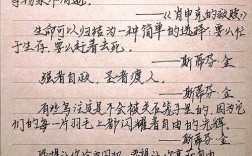 ——《肖申克的救赎》
生命可以归结为一种简单的选择:要么忙
于生存,要么赶着去死。
——斯蒂芬·金
强者自救,圣者渡人。
——斯蒂芬·金
有些鸟注定是不会被关在笼子里的,因为它
们的每一片羽毛上都闪耀着自由的光辉。
——斯蒂芬·金